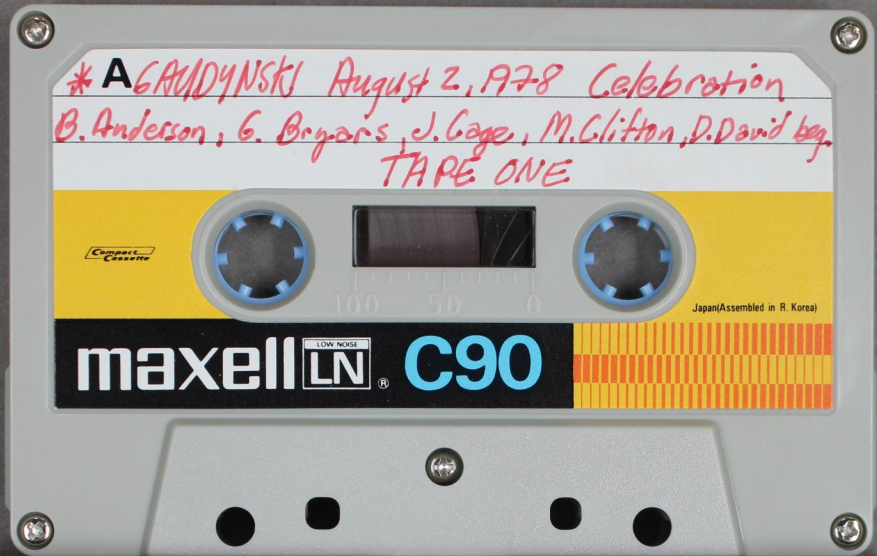 * A GAUDYNSKI August 2, 1978 Celebration
B. Anderson, G. Bryars, J. Cage, M. Clifton, D. David beg.
TAPE ONE
Compact Cassette
100 50 0
Japan(Assembled in R. Korea)
maxell LOW NOISE LN ® C90